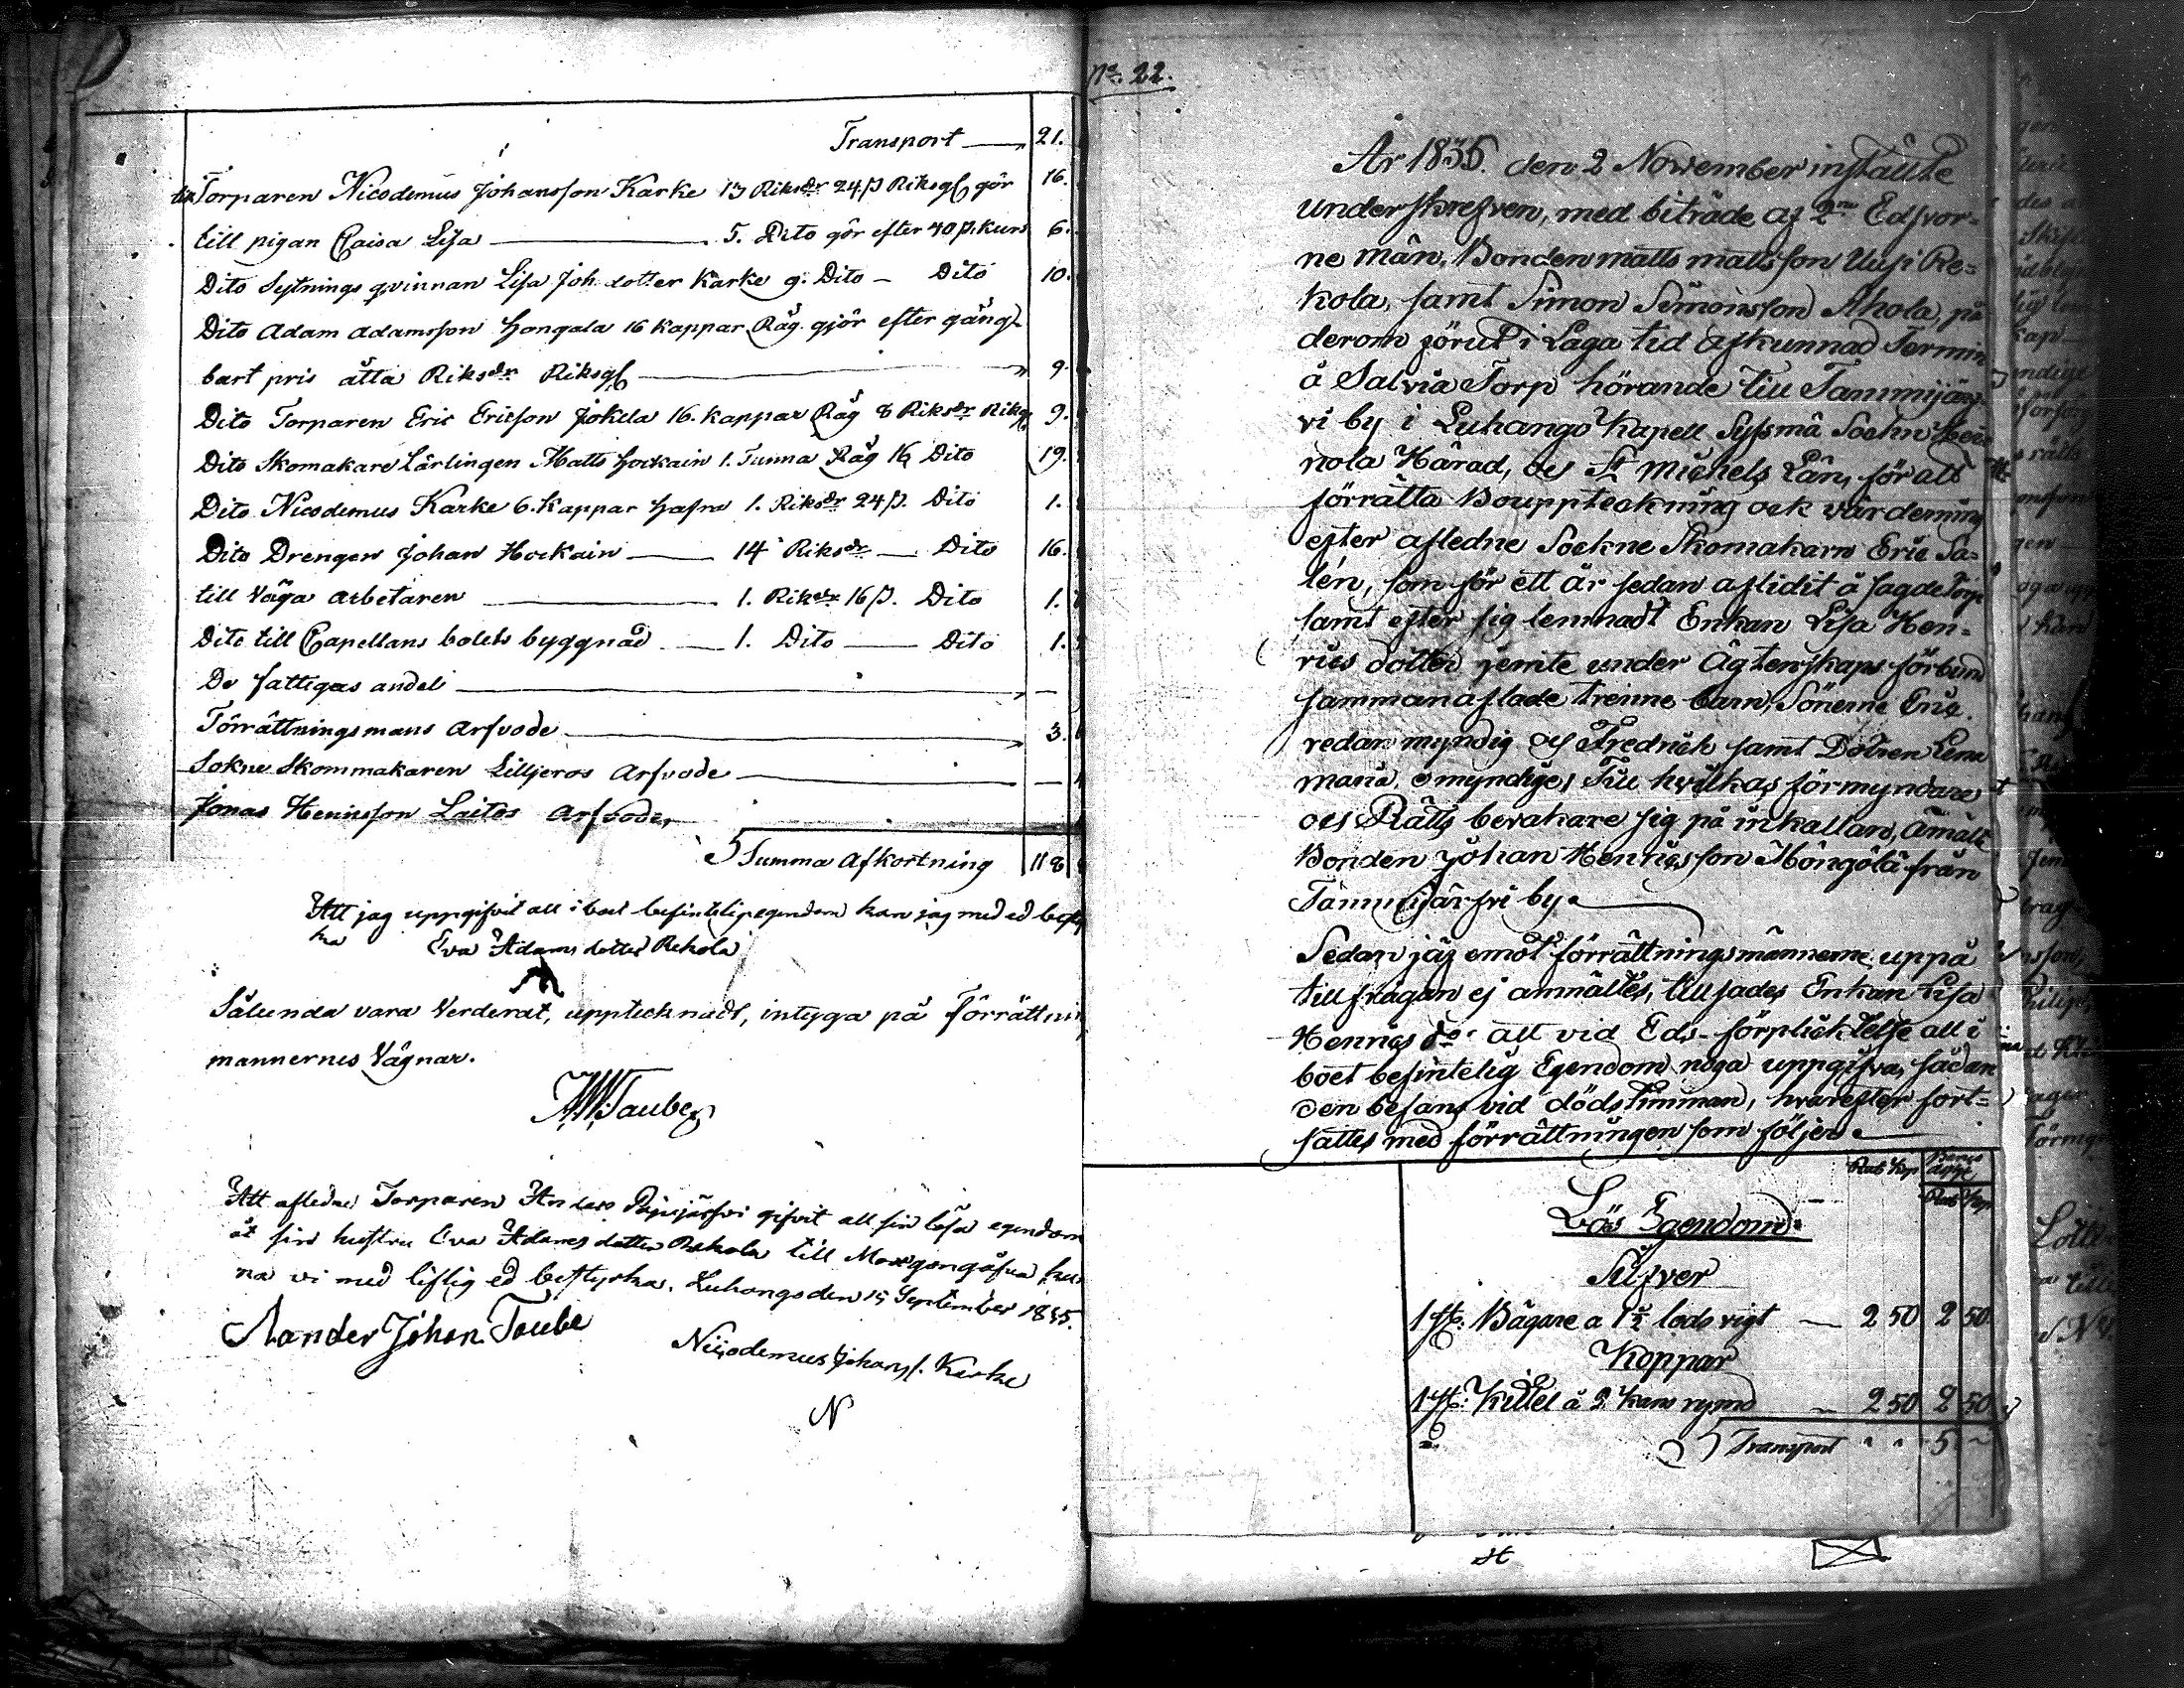 Transport 21.
till Torparen Nicodemus Johansson Karke 13 Riksdr 24 ß Riksgs gör 16.
till pigan Caisa Lisa 5. Dito gör efter 40 ß. kurs 6.
Dito Sytnings qvinnan Lisa Joh. dotter Karke 9. Dito – Dito 10.
Dito Adam Adamsson Hongala 16 kappar Råg gjör efter gäng-
bart pris åtta Riksdr Riksgs 9.
Dito Torparen Eric Ericson Jokela 16. kappar Råg 8 Riksdr Riksgs 9.
Dito Skomakare Lärlingen Matts Hockain 1. Tunna Råg 16 Dito 19.
Dito Nicodemus Karke 6. Kappar Hafra 1. Riksdr 24 ß. Dito 1.
Dito Drengen Johan Hockain 14 Riksdr Dito 16.
till Väga arbetaren 1. Riksdr 16 ß. Dito 1.
Dito till Capellans bolets byggnad 1. Dito Dito 1.
De fattigas andel
Förrättningsmans Arfvode 3.
Sokne Skommakaren Lilljeros Arfvode
Jonas Henrisson Laitos Arfvode
Summa Afkortning 118
Att jag uppgifvit all i boet befintelig egendom kan jag med ed besty
ka Eva Adams dotter Rekola
Sålunda vara Verderat, upptecknadt, intyga på Förrättni
mannernes Vägnar.
Taube
Att afledne Torparen Anders Päijäsjärfvi gifvit all sin lösa egendom
åt sin hustru Eva Adamsdotter Rekola till Morgongåfva kun
na vi med liflig ed bestyrka. Luhango den 15 September 1835.
Aander Johan Taube
Nicodemus Johans s. Karke
N
No. 22.
År 1835. den 2 November inställte
underskrefven, med biträde af 2ne Edsvor-
ne män, Bonden Matts Mattsson Uusi Re-
kola, samt Simon Simonsson Ahola, på
derom förut i Laga tid afkunnad Termin
å Salvia Torp hörande till Tammijärf-
vi by i Luhango Kapell Sysmä Sochn Hei
nola Härad, och St Michels Län, för att
förrätta Bouppteckning ock värdering
efter afledne Sockne Skomakarn Eric Sa-
lén, som för ett år sedan aflidit å sagde torp
samt efter sig lemnadt Enkan Lisa Hen-
rics dotter jemte under Ägtenskaps förbund
sammanaflade trenne barn, Sönerne Eric
redan myndig och Fredrich samt Dottren Lena
Maria, omyndige, Till hvilkas förmyndare
och Rätts bevakare sig på inkallan, Anmält
Bonden Johan Henricsson Hongola från
Tammijärfvi by.
Sedan jäf emot förrättningsmännerne uppå
tillfrågan ej anmältes, tillsades Enkan Lisa
Henrics dr att vid Eds-förpliktelse all i
boet befintelig Egendom noga uppgifva, sådan
den befans vid dödstimman, hvarefter fort-
sattes med förrättningen som följer.
Rub Kop
Rub Kop
Lös Egendom
Silfver
1 st. Bägare a 1½ lods vigt 2 50 2 50
Koppar
1 st. Kittel å 2 Kans rymd 2 50 2 50
Transport " " 5 –